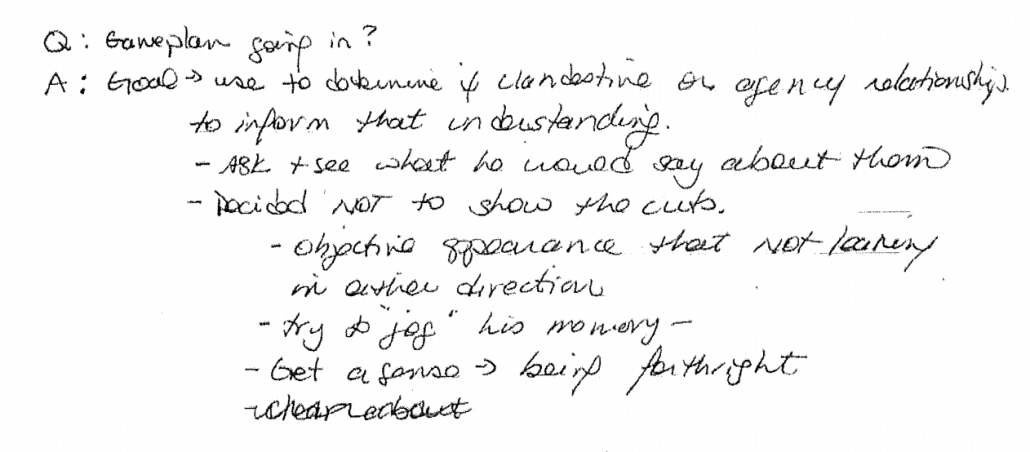 Q: Gameplan going in?
A: Goal → use to determine if clandestine or agency relationships.
to inform that understanding.
- Ask + see what he would say about them
- Decided NOT to show the cuts.
- objective appearance that NOT leaning
in either direction
- try to "jog" his memory -
- Get a sense → being forthright